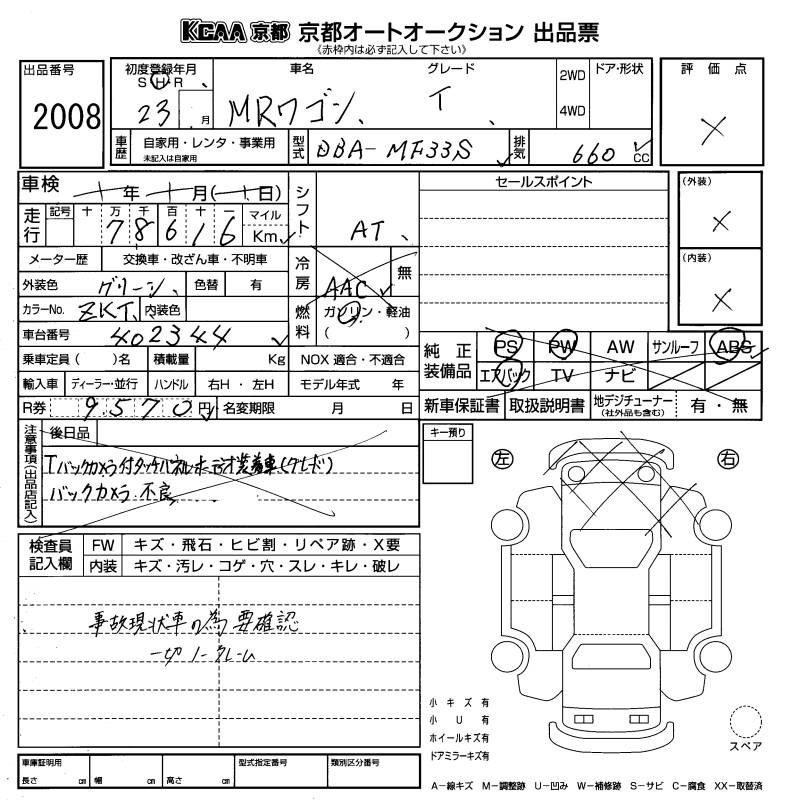 KCAA 京都 京都オートオークション 出品票
《赤枠内は必ず記入して下さい》
出品番号
2008
初度登録年月
S H R
23 月
車名
MRワゴン
グレード
T
2WD
4WD
ドア・形状
評価点
X
車歴
自家用・レンタ・事業用
未記入は自家用
型式
DBA-MF33S
排気
660 CC
車検
年 月( 日)
走行
記号 十 万 千 百 十 一
78616
マイル
Km
シフト
AT
セールスポイント
(外装)
X
(内装)
X
メーター歴
交換車・改ざん車・不明車
冷房
AAC
無
外装色
グリーン
色替
有
カラーNo.
ZKT
内装色
燃料
ガソリン・軽油
( )
車台番号
402344
乗車定員 ( )名
積載量
Kg
NOX 適合・不適合
輸入車
ディーラー・並行
ハンドル
右H・左H
モデル年式 年
R券
9570円
名変期限 月 日
純正装備品
PS PW AW サンルーフ ABS
エアバック TV ナビ
新車保証書 取扱説明書
地デジチューナー
(社外品も含む)
有・無
注意事項(出品店記入)
後日品
Tバックカメラ付タッチパネルオーディオ装着車(グレード)
バックカメラ不良
キー預り
左
右
検査員記入欄
FW キズ・飛石・ヒビ割・リペア跡・X要
内装 キズ・汚レ・コゲ・穴・スレ・キレ・破レ
事故現状車の為要確認
一切ノークレーム
小キズ有
小U有
ホイールキズ有
ドアミラーキズ有
スペア
車庫証明用
長さ cm 幅 cm 高さ cm
型式指定番号
類別区分番号
A−線キズ M−調整跡 U−凹み W−補修跡 S−サビ C−腐食 XX−取替済